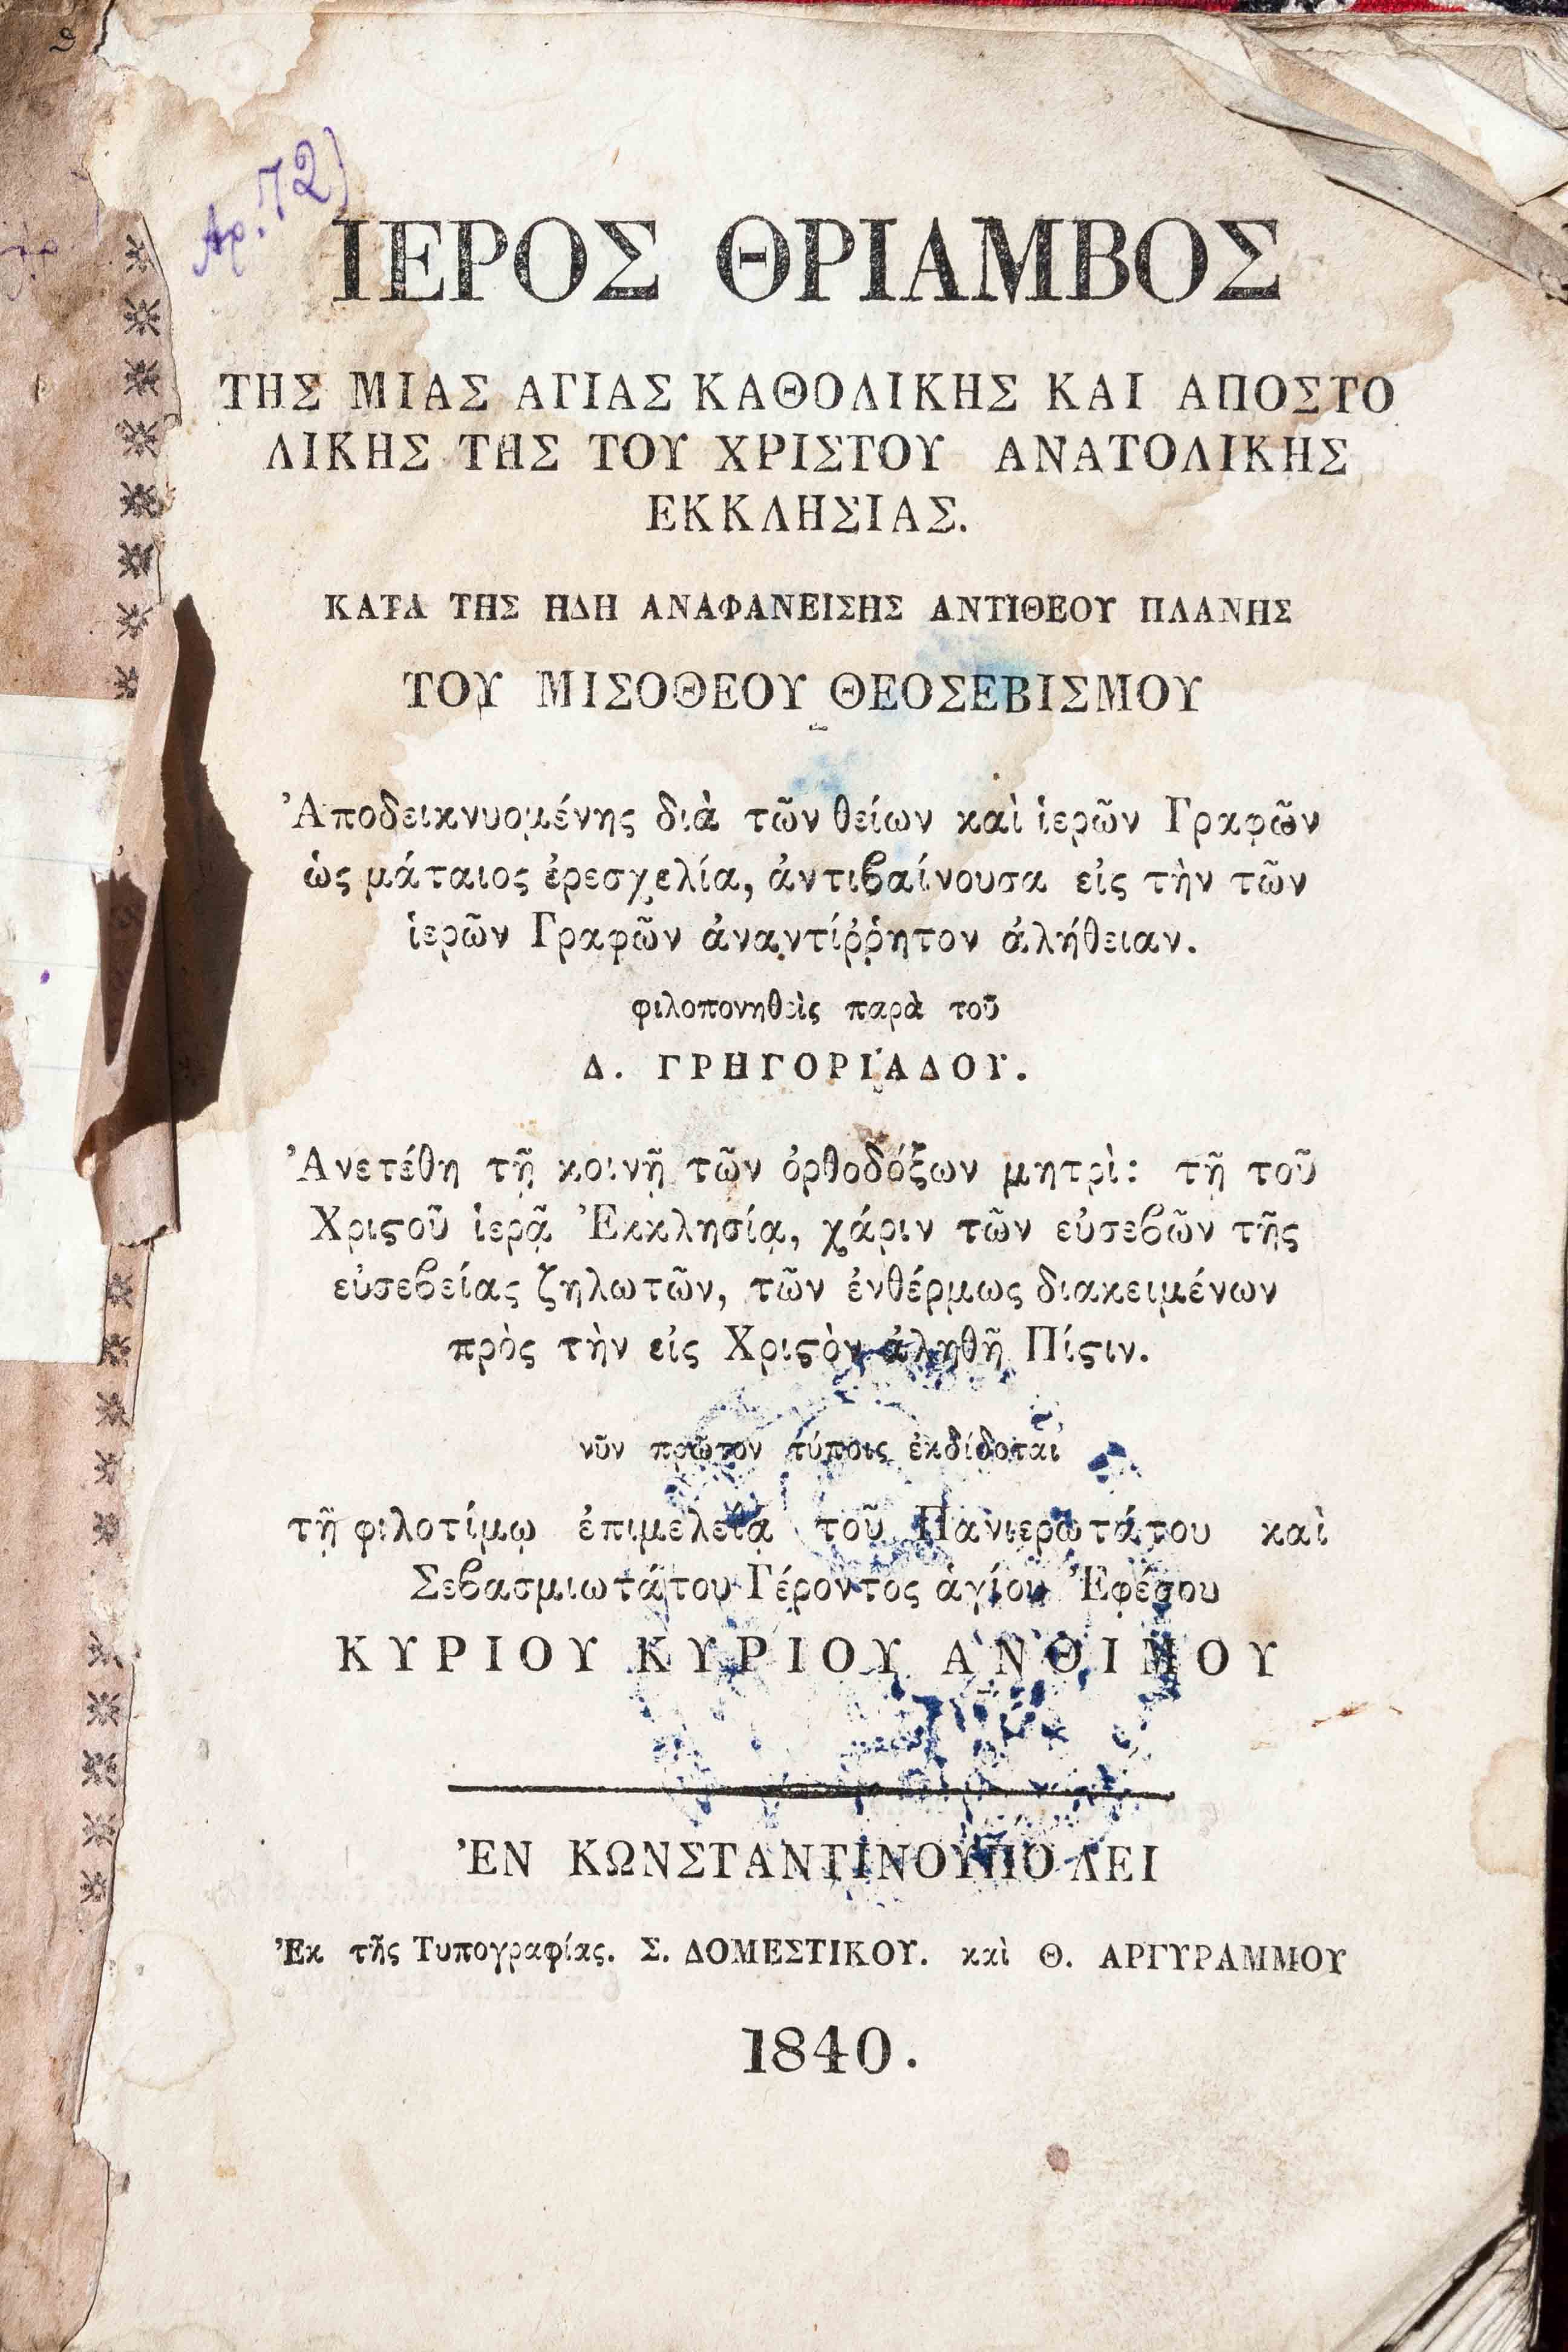 Αρ. 72)
ΙΕΡΟΣ ΘΡΙΑΜΒΟΣ
ΤΗΣ ΜΙΑΣ ΑΓΙΑΣ ΚΑΘΟΛΙΚΗΣ ΚΑΙ ΑΠΟΣΤΟ
ΛΙΚΗΣ ΤΗΣ ΤΟΥ ΧΡΙΣΤΟΥ ΑΝΑΤΟΛΙΚΗΣ
ΕΚΚΛΗΣΙΑΣ.
ΚΑΤΑ ΤΗΣ ΗΔΗ ΑΝΑΦΑΝΕΙΣΗΣ ΑΝΤΙΘΕΟΥ ΠΛΑΝΗΣ
ΤΟΥ ΜΙΣΟΘΕΟΥ ΘΕΟΣΕΒΙΣΜΟΥ
Ἀποδεικνυομένης διὰ τῶν θείων καὶ ἱερῶν Γραφῶν
ὡς μάταιος ἐρεσχελία, ἀντιϐαίνουσα εἰς τὴν τῶν
ἱερῶν Γραφῶν ἀναντίῤῥητον ἀλήθειαν.
φιλοπονηθεὶς παρὰ τοῦ
Δ. ΓΡΗΓΟΡΙΆΔΟΥ.
Ἀνετέθη τῇ κοινῇ τῶν ὀρθοδόξων μητρὶ: τῇ τοῦ
Χριϛοῦ ἱερᾷ Ἐκκλησίᾳ, χάριν τῶν εὐσεϐῶν τῆς
εὐσεϐείας ζηλωτῶν, τῶν ἐνθέρμως διακειμένων
πρὸς τὴν εἰς Χριϛὸν ἀληθῆ Πίϛιν.
νῦν πρῶτον τύποις ἐκδίδοται
τῇ φιλοτίμῳ ἐπιμελείᾳ τοῦ Πανιερωτάτου καὶ
Σεϐασμιωτάτου Γέροντος ἁγίου Ἐφέσου
ΚΥΡΙΟΥ ΚΥΡΙΟΥ ΑΝΘΙΜΟΥ
ἘΝ ΚΩΝΣΤΑΝΤΙΝΟΥΠΟΛΕΙ
Ἐκ τῆς Τυπογραφίας. Σ. ΔΟΜΕΣΤΙΚΟΥ. καὶ Θ. ΑΡΓΥΡΑΜΜΟΥ
1840.